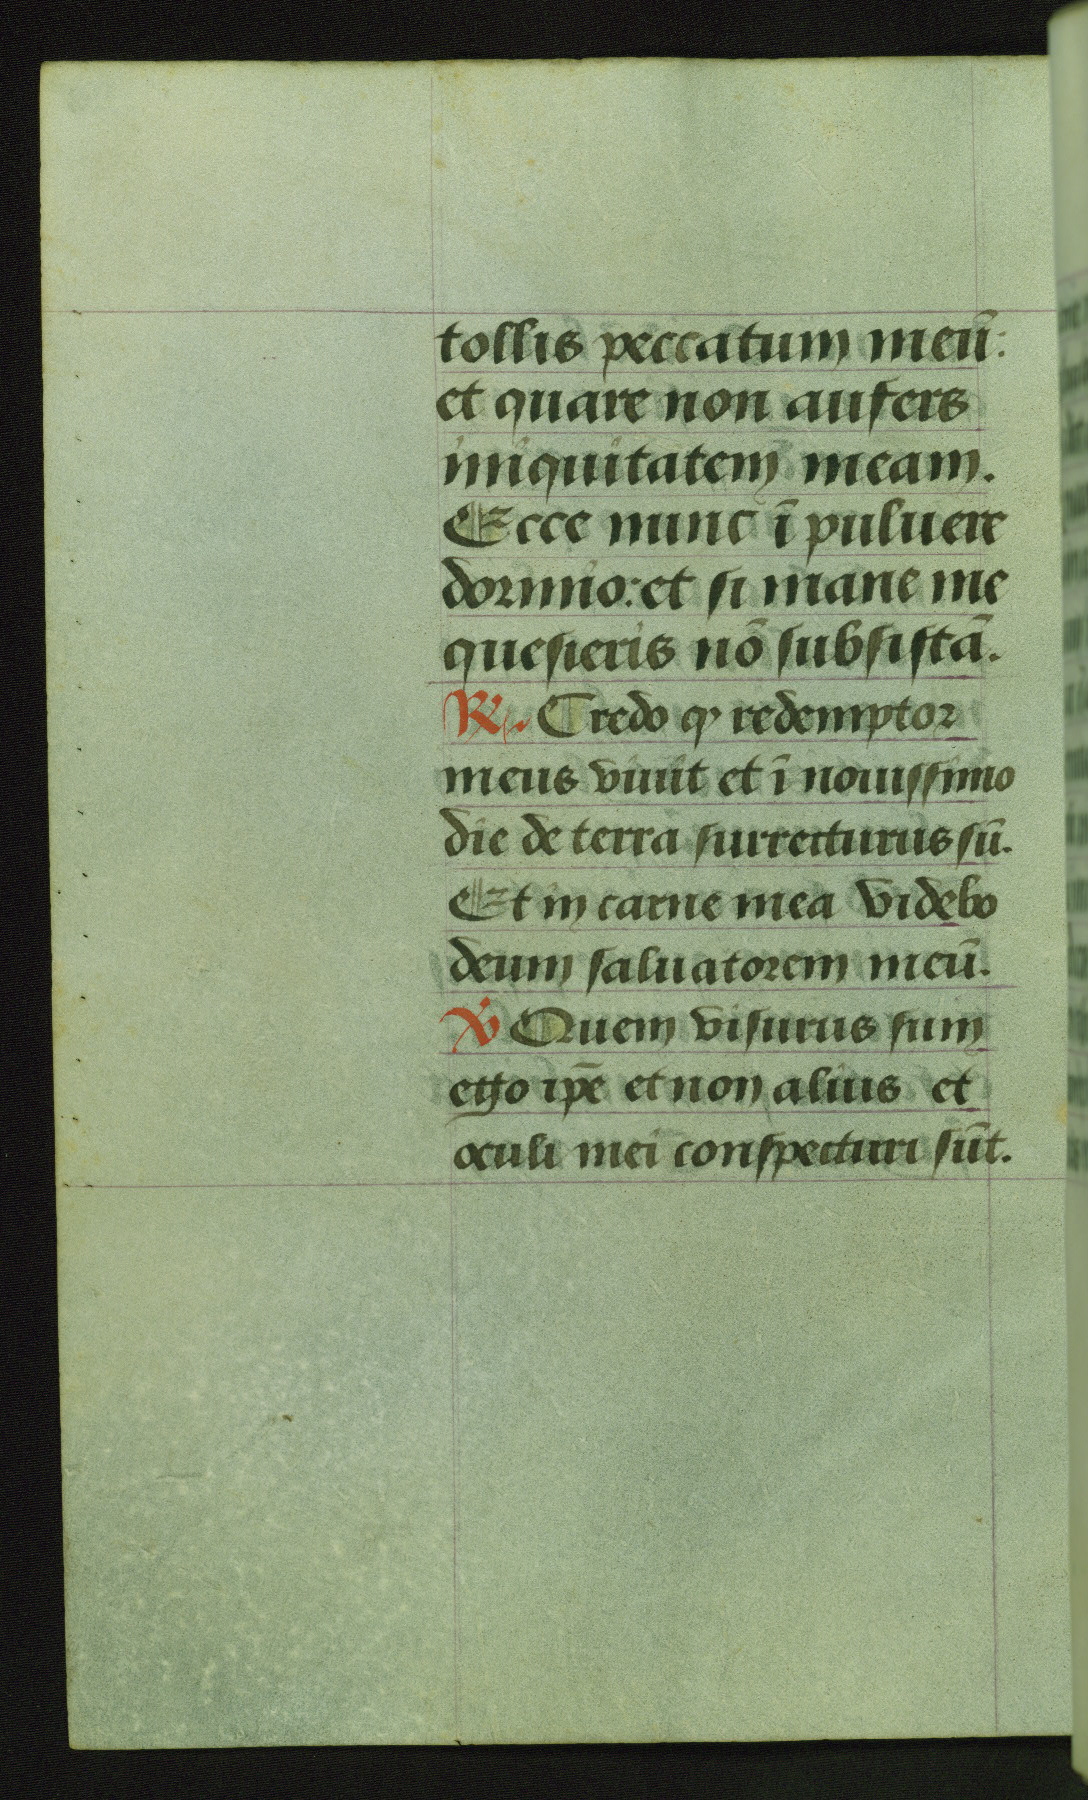 tollis peccatum meū:
et quare non aufers
iniquitatem meam.
Ecce nunc ī puluere
dormio: et si mane me
quesieris nō subsistā.
R. Credo qꝫ redemptor
meus viuit et ī nouissimo
die de terra surrecturus sū.
Et in carne mea videbo
deum saluatorem meū.
V Quem visurus sum
ego ip̄e et non alius et
oculi mei conspecturi sūt.